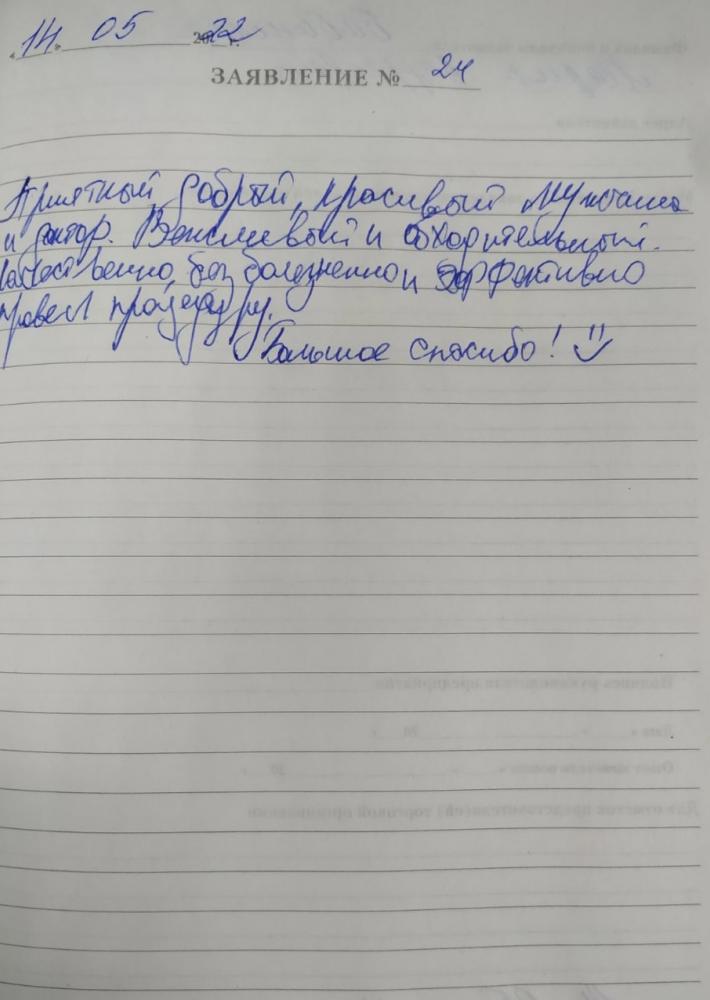 «14» 05 2022 г.
ЗАЯВЛЕНИЕ № 24
Приятный, добрый, красивый мужчина
и доктор. Вежливый и обходительный.
Качественно, безболезненно и эффективно
провел процедуру.
Большое спасибо!